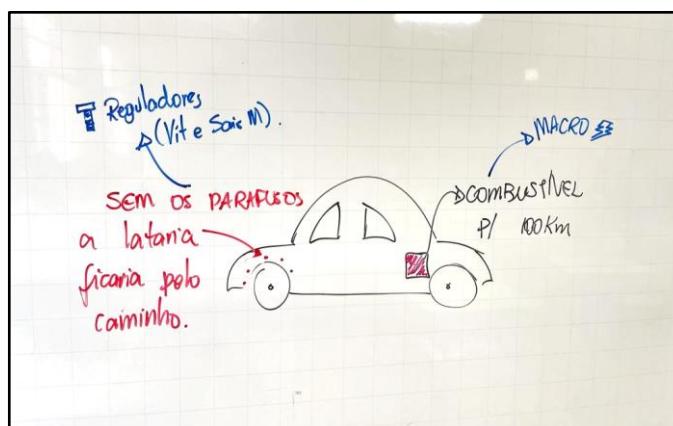 Reguladores
(Vit e Sais M).
SEM OS PARAFUSOS
a lataria
ficaria pelo
caminho.
MACRO
COMBUSTÍVEL
P/ 100Km